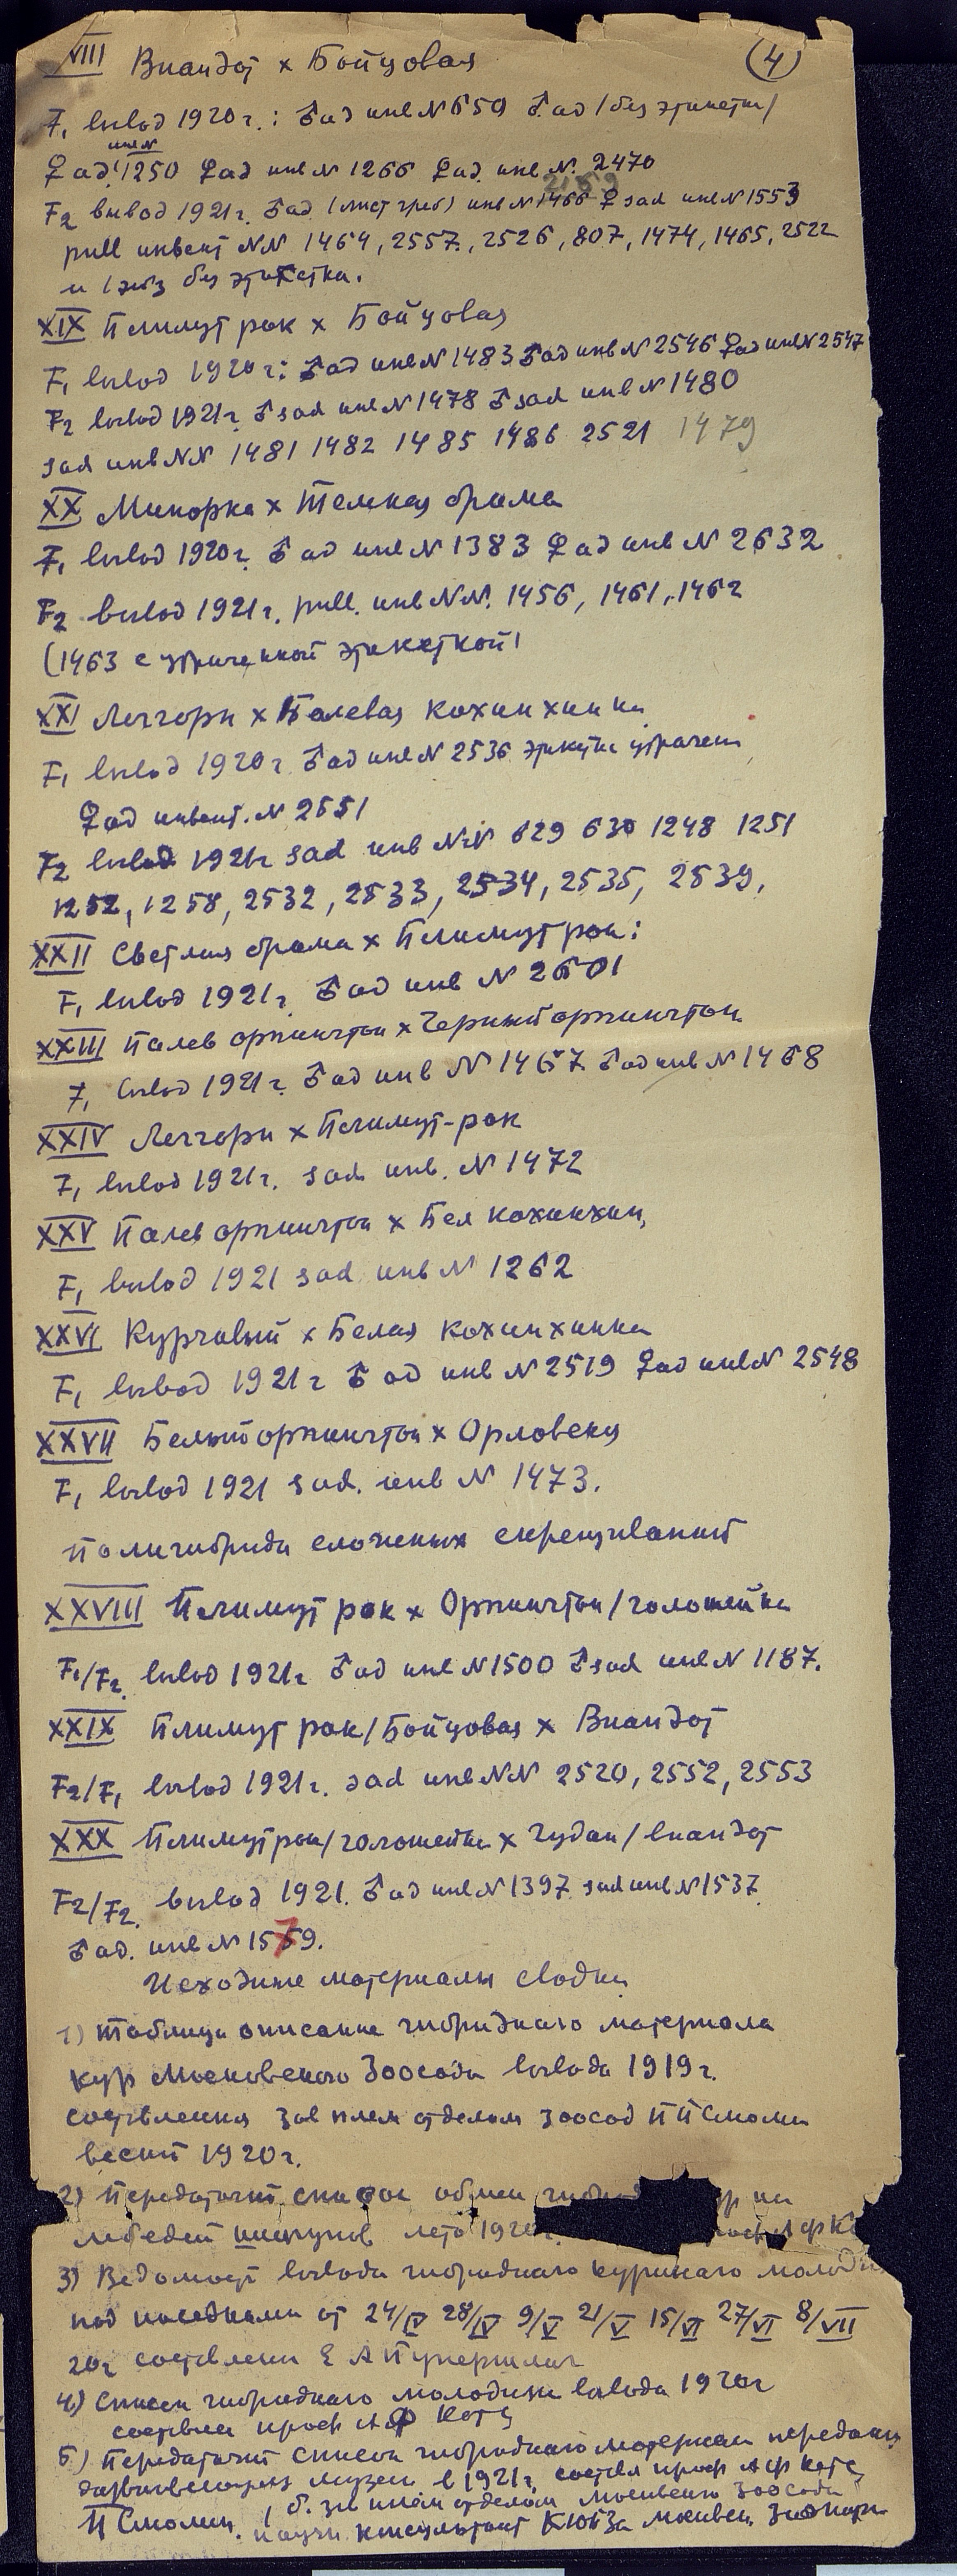 VIII Виандот x Бойцовая (4)
F1 вывод 1920 г.: ♂ad инв N 659 ♂ad (без этикетки)
♀ad. инв N 1250 ♀ad инв N 1266 ♀ad. инв. N. 2470
F2 вывод 1921 г. ♂ad. (лист греб) инв N 1466 ♀ sad инв N 1553
pull инвент NN 1464, 2557, 2526, 807, 1474, 1465, 2522
и 1 экз без этикетки.
XIX Плимут рок x Бойцовая
F1 вывод 1920 г: ♂ad инв N 1483 ♂ad инв N 2546 ♀ad инв N 2547
F2 вывод 1921 г. ♂ sad инв N 1478 ♂ sad инв N 1480
sad инв NN 1481 1482 1485 1486 2521 1479
XX Минорка x Темная брама
F1 вывод 1920 г. ♂ ad инв N 1383 ♀ ad инв N 2632
F2 вывод 1921 г. pull. инв NN. 1456, 1461, 1462
(1463 с утраченной этикеткой)
XXI Леггорн x Палевая кохинхинка
F1 вывод 1920 г. ♂ ad инв N 2536 этикетка утрачен
♀ad инвент. N 2551
F2 вывод 1921 г sad инв NN 629 630 1248 1251
1252, 1258, 2532, 2533, 2534, 2535, 2539,
XXII Светлая брама x Плимутрок:
F1 вывод 1921 г. ♂ ad инв N 2601
XXIII Палев орпингтон x Черный орпингтон
F1 вывод 1921 г. ♂ ad инв N 1467 ♂ad инв N 1468
XXIV Леггорн x Плимут-рок
F1 вывод 1921 г. sad инв. N 1472
XXV Палев орпингтон x Бел кохинхин,
F1 вывод 1921 sad инв N 1262
XXVI Курчавый x Белая кохинхинка
F1 вывод 1921 г ♂ ad инв N 2519 ♀ad инв N 2548
XXVII Белый орпингтон x Орловская
F1 вывод 1921 sad. инв N 1473.
Полигибриды сложных скрещиваний
XXVIII Плимут рок x Орпингтон/голошейка
F1/F2. вывод 1921 г ♂ad инв N 1500 ♂sad инв N 1187.
XXIX Плимут рок/Бойцовая x Виандот
F2/F1 вывод 1921 г. sad инв NN 2520, 2552, 2553
XXX Плимутрок/голошейка x Гудан/виандот
F2/F2. вывод 1921. ♂ad инв N 1397 sad инв N 1537
♂ad. инв N 1579.
Исходные материалы сводки
1) Таблица описание гибридного материала
кур Московского Зоосада вывода 1919 г.
составленная зав плем отделом зоосад П П Смолин
весной 1920 г.
2) Передаточный список обмен на
лебедей шипунов лето 1920 г.
3) Ведомост вывода гибридного куриного молодня
под наседками от 24/IV 28/IV 9/V 21/V 15/VI 27/VI 8/VII
20 г составлена Е А
4) Список гибридного молодняка вывода 1920 г
составлен проф А Ф Котс
5) Передаточный список гибридного материал передан
музею в 1921 г. составл проф А Ф Котс
П Смолин, (б. зав плем отделом Московского Зоосада
научн консультант КЮБЗа Московск. Зоопарк